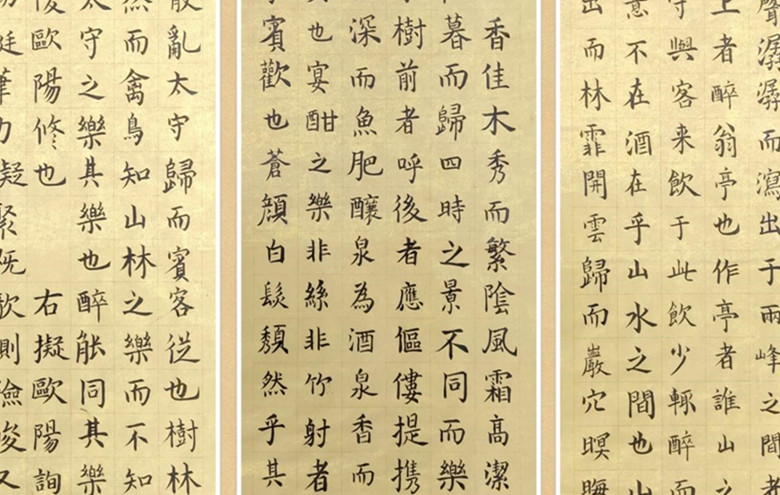 聲潺潺而瀉出于兩峰之間者
上者醉翁亭也作亭者誰山之
守與客来飲于此飲少輒醉而
意不在酒在乎山水之間也山
出而林霏開雲歸而巖穴暝晦
香佳木秀而繁陰風霜高潔
暮而歸四時之景不同而樂
樹前者呼後者應傴僂提携
深而魚肥釀泉為酒泉香而
也宴酣之樂非絲非竹射者
賓歡也蒼顔白髮頹然乎其
散亂太守歸而賓客従也樹林
然而禽鳥知山林之樂而不知
太守之樂其樂也醉能同其樂
陵歐陽修也 右擬歐陽詢
挺筆力凝聚既欹則險峻又